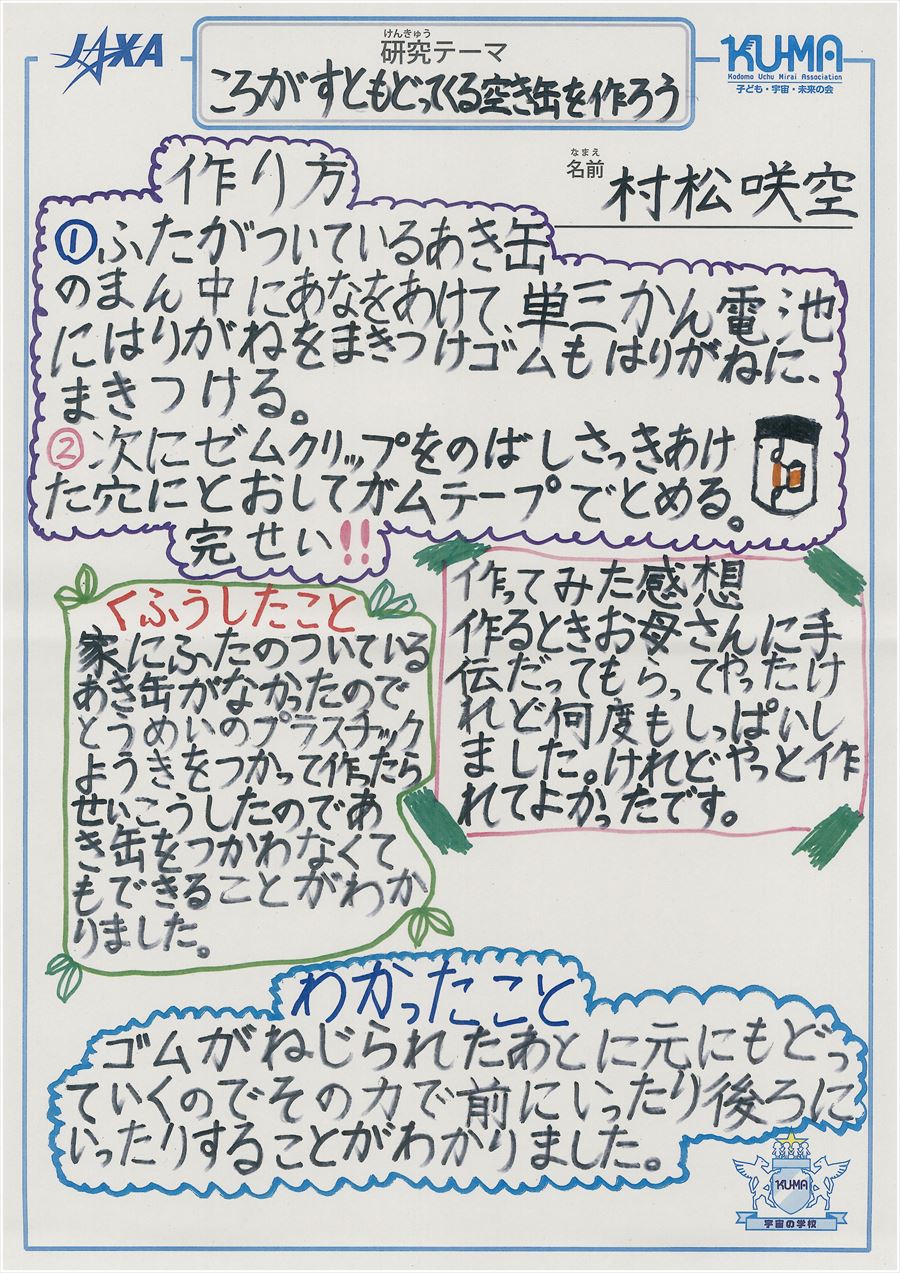 JAXA
けんきゅう
研究テーマ
ころがすともどってくる空き缶を作ろう
KU-MA
Kodomo Uchu Mirai Association
子ども・宇宙・未来の会
なまえ
名前 村松咲空
作り方
①ふたがついているあき缶
のまん中にあなをあけて、単三かん電池
にはりがねをまきつけゴムもはりがねに、
まきつける。
②次にゼムクリップをのばしさっきあけ
た穴にとおしてガムテープでとめる。
完せい!!
くふうしたこと
家にふたのついている
あき缶がなかったので
とうめいのプラスチック
ようきをつかって作ったら
せいこうしたのであ
き缶をつかわなくて
もできることがわか
りました。
作ってみた感想
作るときお母さんに手
伝だってもらってやったけ
れど何度もしっぱいし
ました。けれどやっと作
れてよかったです。
わかったこと
ゴムがねじられたあとに元にもどっ
ていくのでその力で前にいったり後ろに
いったりすることがわかりました。
KU-MA
宇宙の学校